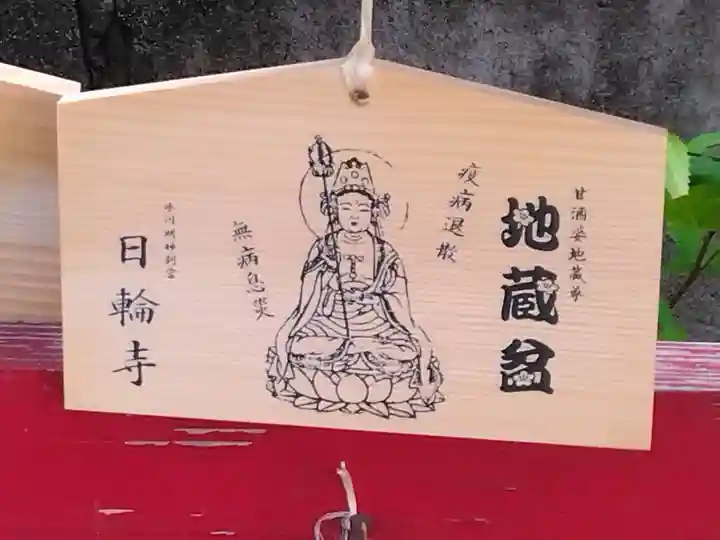 甘酒婆地蔵尊
地蔵盆
疫病退散
無病息災
氷川明神別当
日輪寺